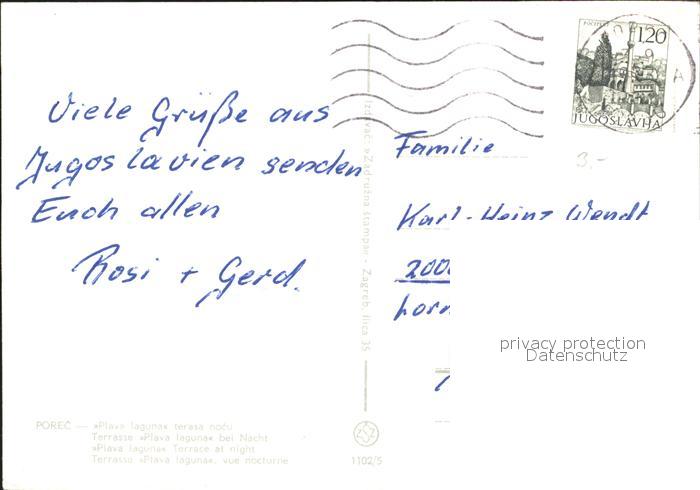 Viele Grüße aus
Jugoslavien senden
Euch allen
Rosi + Gerd.
Familie
Karl-Heinz Wendt
200
POČITELJ
1.20
JUGOSLAVIJA
3.-
privacy protection
Datenschutz
Izdavač: »Zadružna štampa« - Zagreb, Ilica 35
POREČ — »Plava laguna« terasa noću
Terrasse »Plava laguna« bei Nacht
»Plava laguna« Terrace at night
Terrasse »Plava laguna«, vue nocturne
1102/5